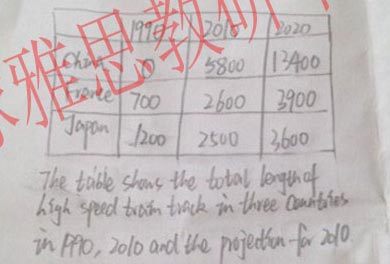 1990 2010 2020
China 0 5800 13400
France 700 2600 3900
Japan 1200 2500 3600
The table shows the total length of
high speed train track in three countries
in 1990, 2010 and the projection for 2010.
雅思教研